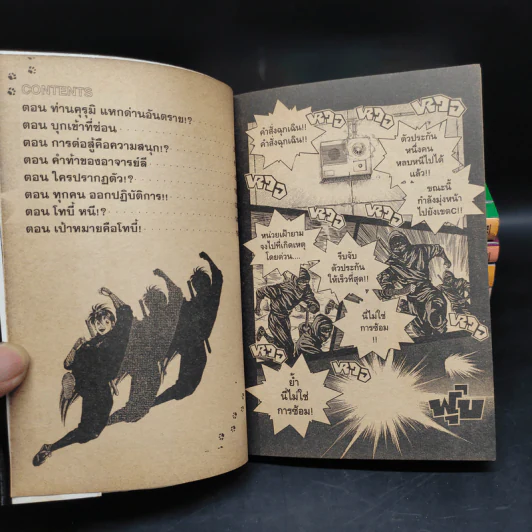 CONTENTS
ตอน ท่านคุรุมิ แหกด่านอันตราย!?
ตอน บุกเข้าที่ซ่อน
ตอน การต่อสู้คือความสนุก!?
ตอน คำทำของอาจารย์ลี
ตอน ใครปรากฏตัว!?
ตอน ทุกคน ออกปฏิบัติการ!!
ตอน โทบี้ หนี!?
ตอน เป้าหมายคือโทบี้!
หวอ
หวอ
หวอ
คำสั่งฉุกเฉิน!!
คำสั่งฉุกเฉิน!!
ตัวประกัน
หนึ่งคน
หลบหนีไปได้
แล้ว!!
หวอ
ขณะนี้
กำลังมุ่งหน้า
ไปยังเขตC!!
หน่วยเฝ้ายาม
จงไปที่เกิดเหตุ
โดยด่วน....
รีบจับ
ตัวประกัน
ให้เร็วที่สุด!!
นี่ไม่ใช่
การซ้อม
!!
หวอ
หวอ
หวอ
ย้ำ
นี่ไม่ใช่
การซ้อม!
พุ่บ